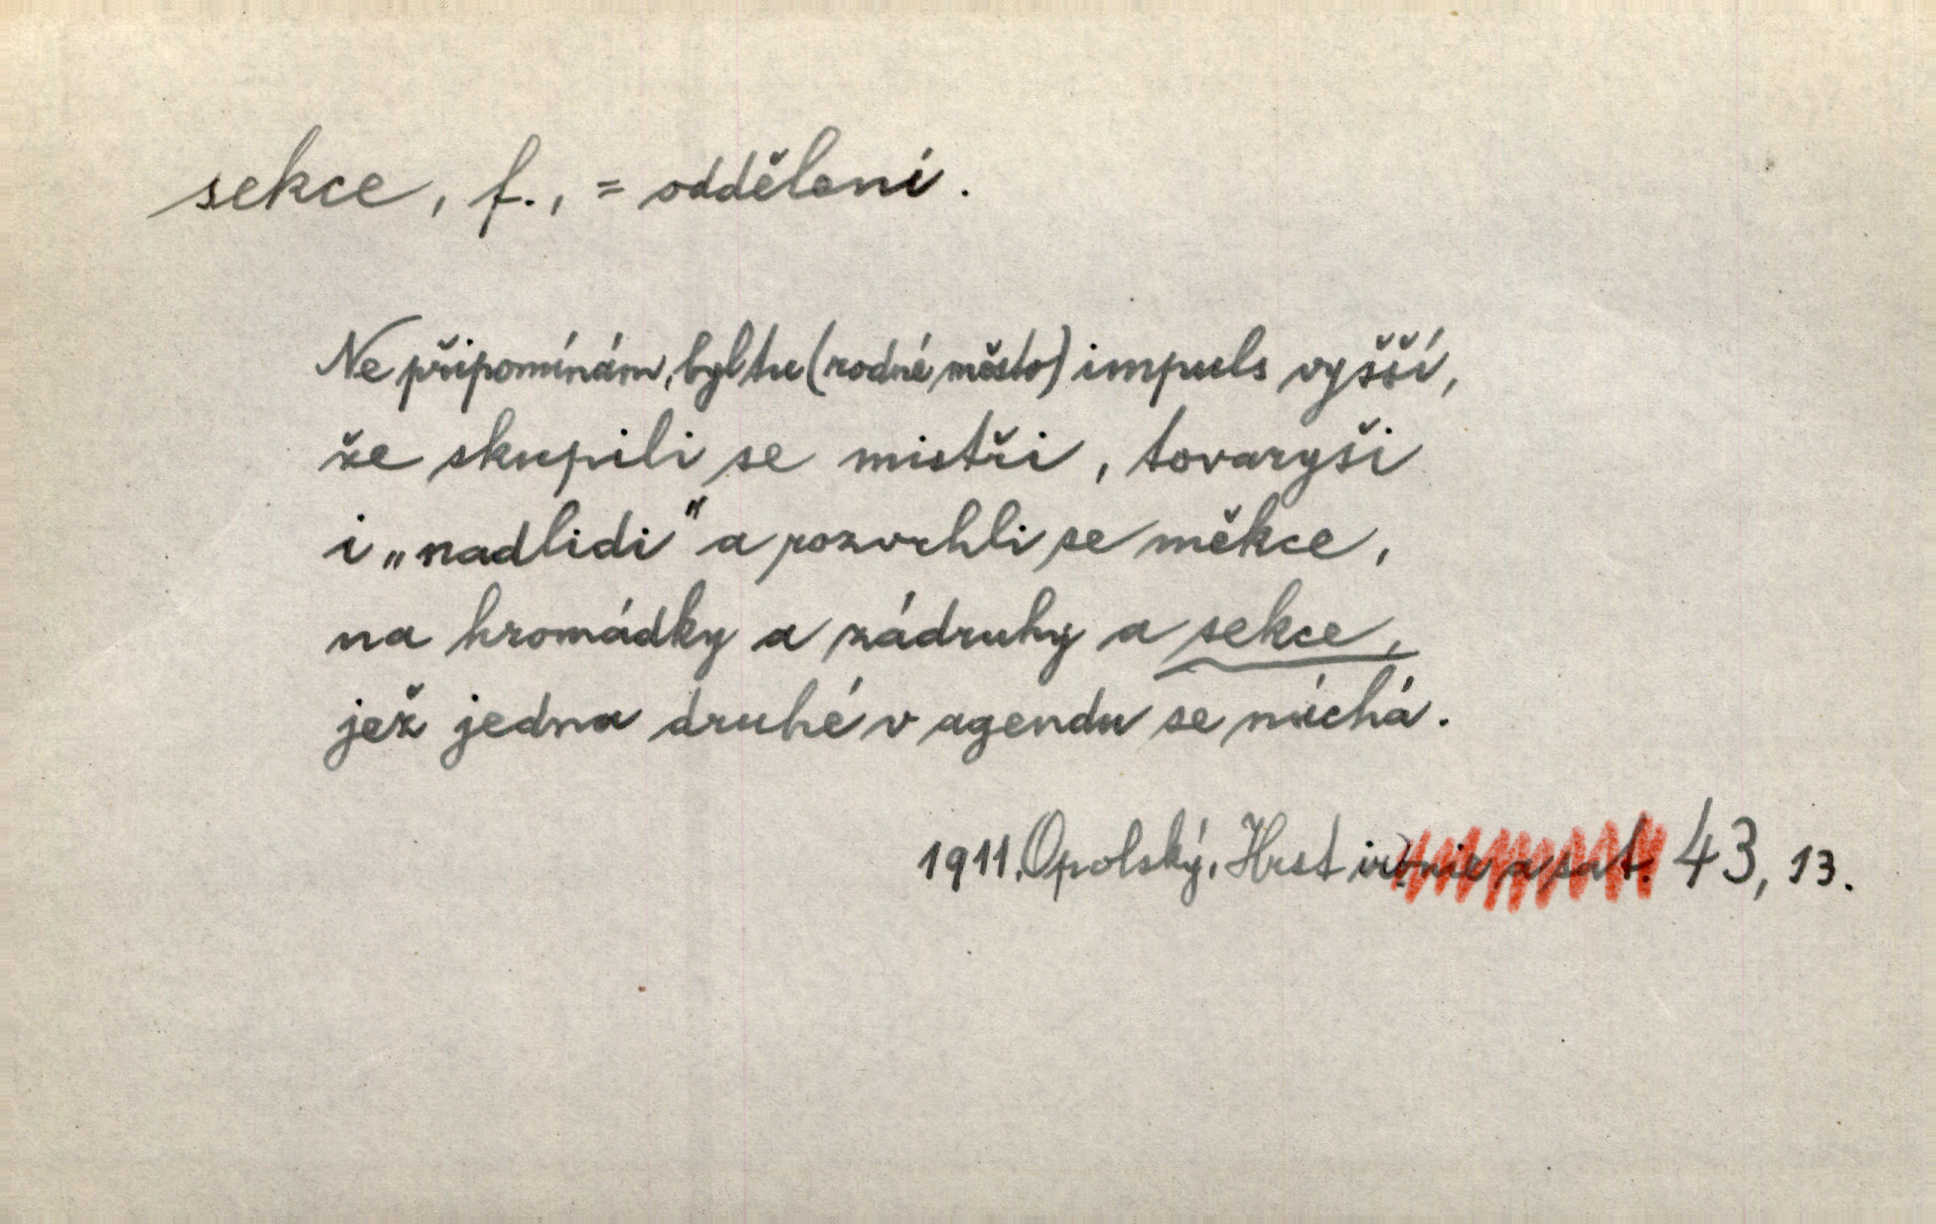 sekce, f., = oddělení.
Ne připomínám, byl tu (rodné město) impuls vyšší,
že skupili se mistři, tovaryši
i „nadlidi" a rozvrhli se měkce,
na hromádky a zádruhy a sekce,
jež jedna druhé v agendu se míchá.
1911. Opolský, Hrst ironie a sat. 43, 13.